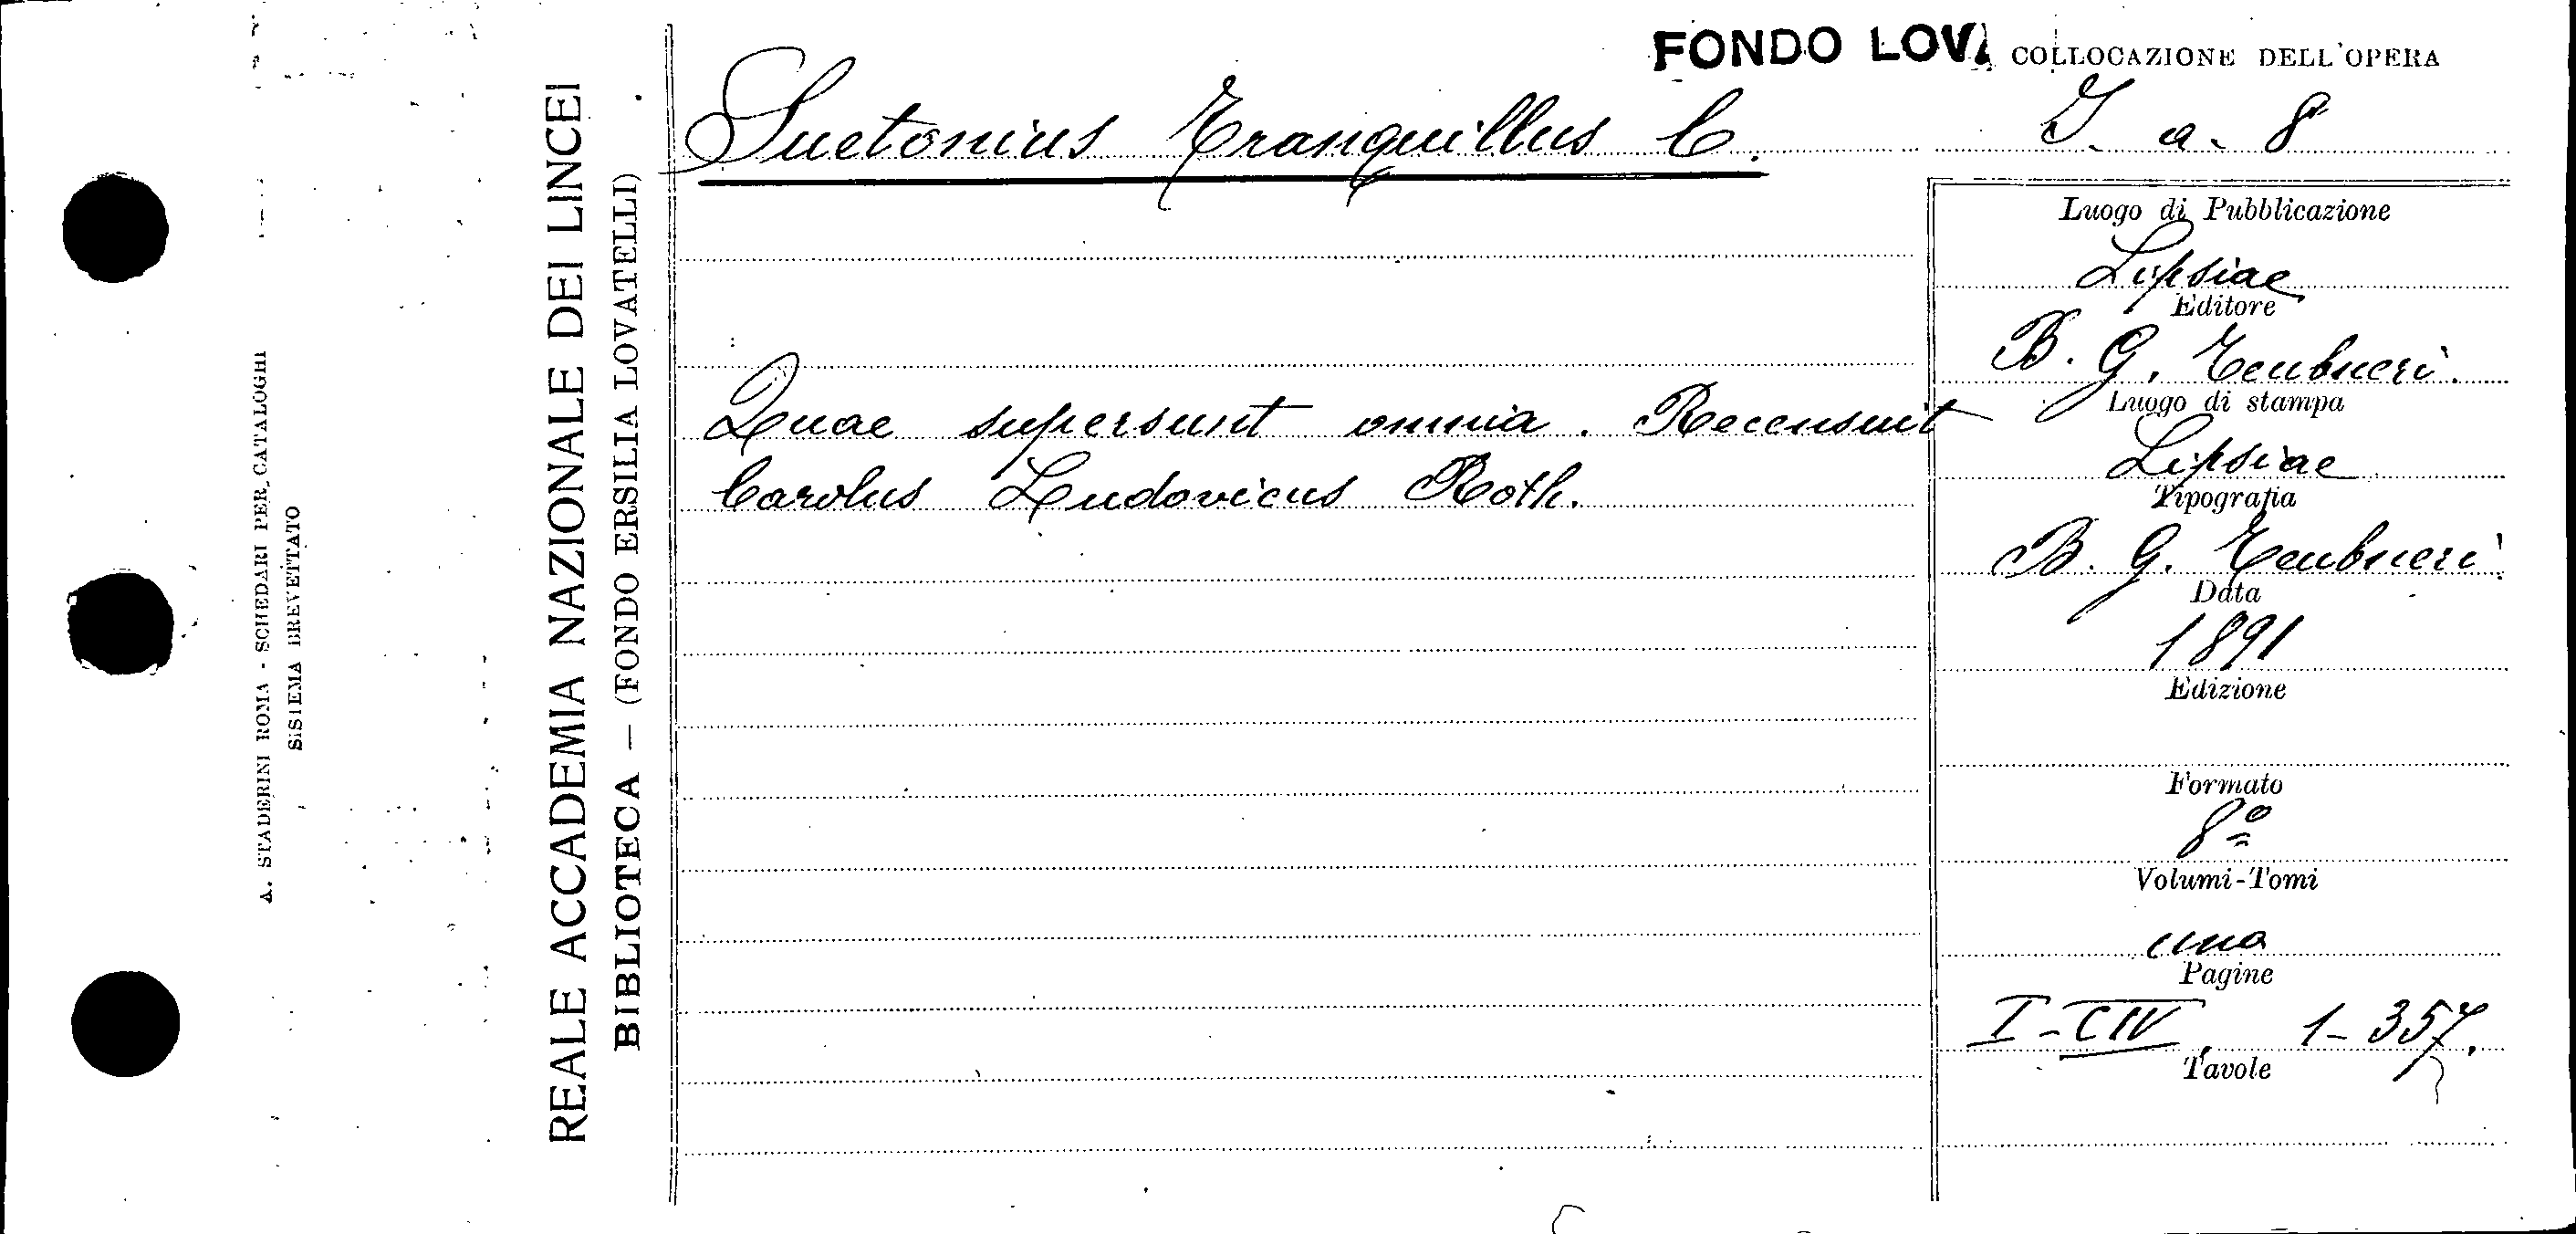 A. STADERINI ROMA - SCHEDARI PER CATALOGHI
SISTEMA BREVETTATO
REALE ACCADEMIA NAZIONALE DEI LINCEI
BIBLIOTECA — (FONDO ERSILIA LOVATELLI)
FONDO LOVA
COLLOCAZIONE DELL'OPERA
Suetonius Tranquillus C.
I. a. 8
Quae supersunt omnia. Recensuit
Carolus Ludovicus Roth.
Luogo di Pubblicazione
Lipsiae
Editore
B. G. Teubneri.
Luogo di stampa
Lipsiae
Tipografia
B. G. Teubneri
Data
1891
Edizione
Formato
8º
Volumi-Tomi
uno
Pagine
I-CIV, 1-357.
Tavole